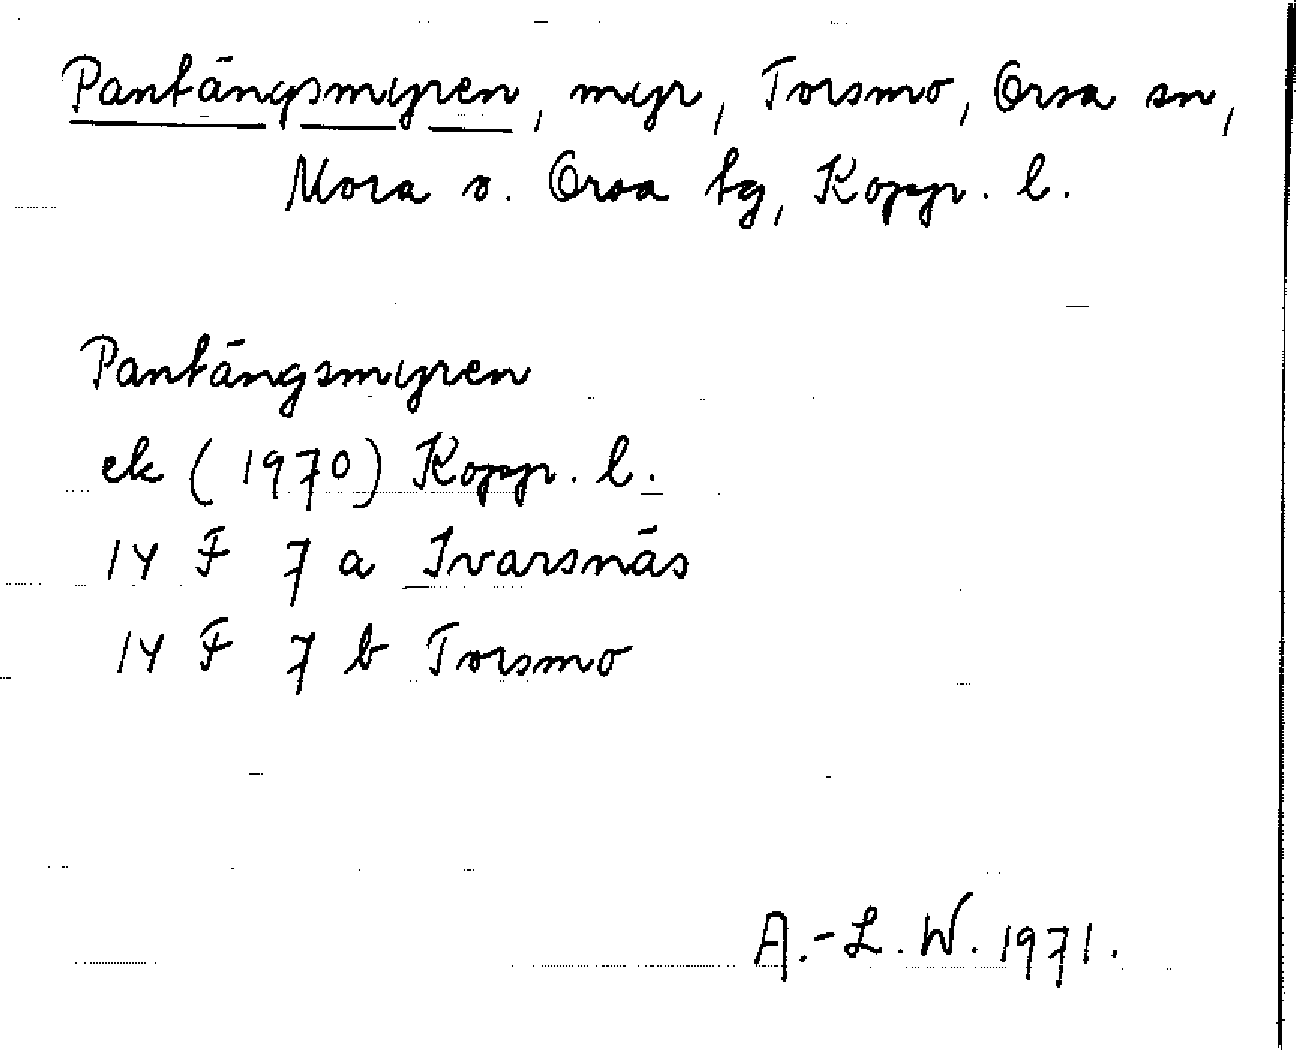 Pantängsmyren, myr, Torsmo, Orsa sn,
Mora o. Orsa tg, Kopp. l.
Pantängsmyren
ek (1970) Kopp. l.
14 F 7 a Ivarsnäs
14 F 7 b Torsmo
A.-L. W. 1971.